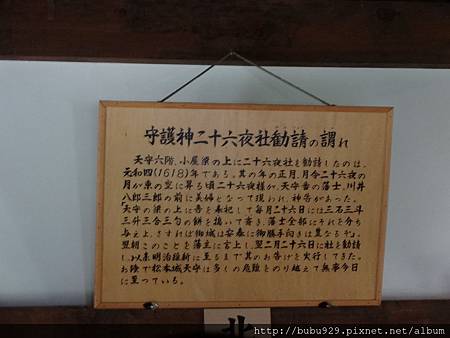 守護神二十六夜社勧請の謂れ
天守六階、小屋梁の上に二十六夜社を勧請したのは、
元和四(1618)年である。其の年の正月、月令二十六夜の
月が東の空に昇る頃二十六夜様が、天守番の藩士、川井
八郎三郎の前に美婦となって現われ、神告があった。
「天守の梁の上に吾を奉祀して毎月二十六日には三石三斗
三升三合三勺の餅を搗いて斎き、藩士全部にそれを分ち
与えよ、さすれば御城は安泰に御勝手向きは豊なるぞ」。
翌朝このことを藩主に言上し、翌二月二十六日に社を勧請
し、以来明治維新に至るまで其のお告げを実行してきた。
お陰で松本城天守は多くの危難をのり越えて無事今日
に至っている。
北
http://bubu929.pixnet.net/album